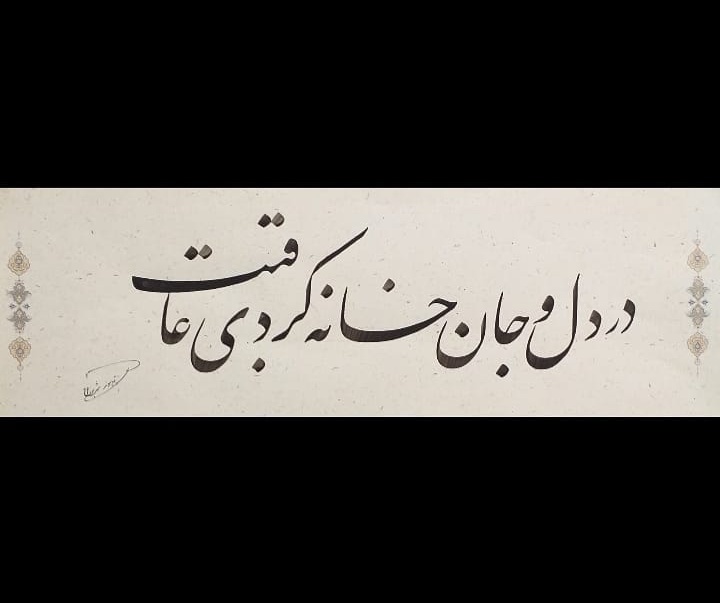 در دل و جان خانه کردی عاقبت